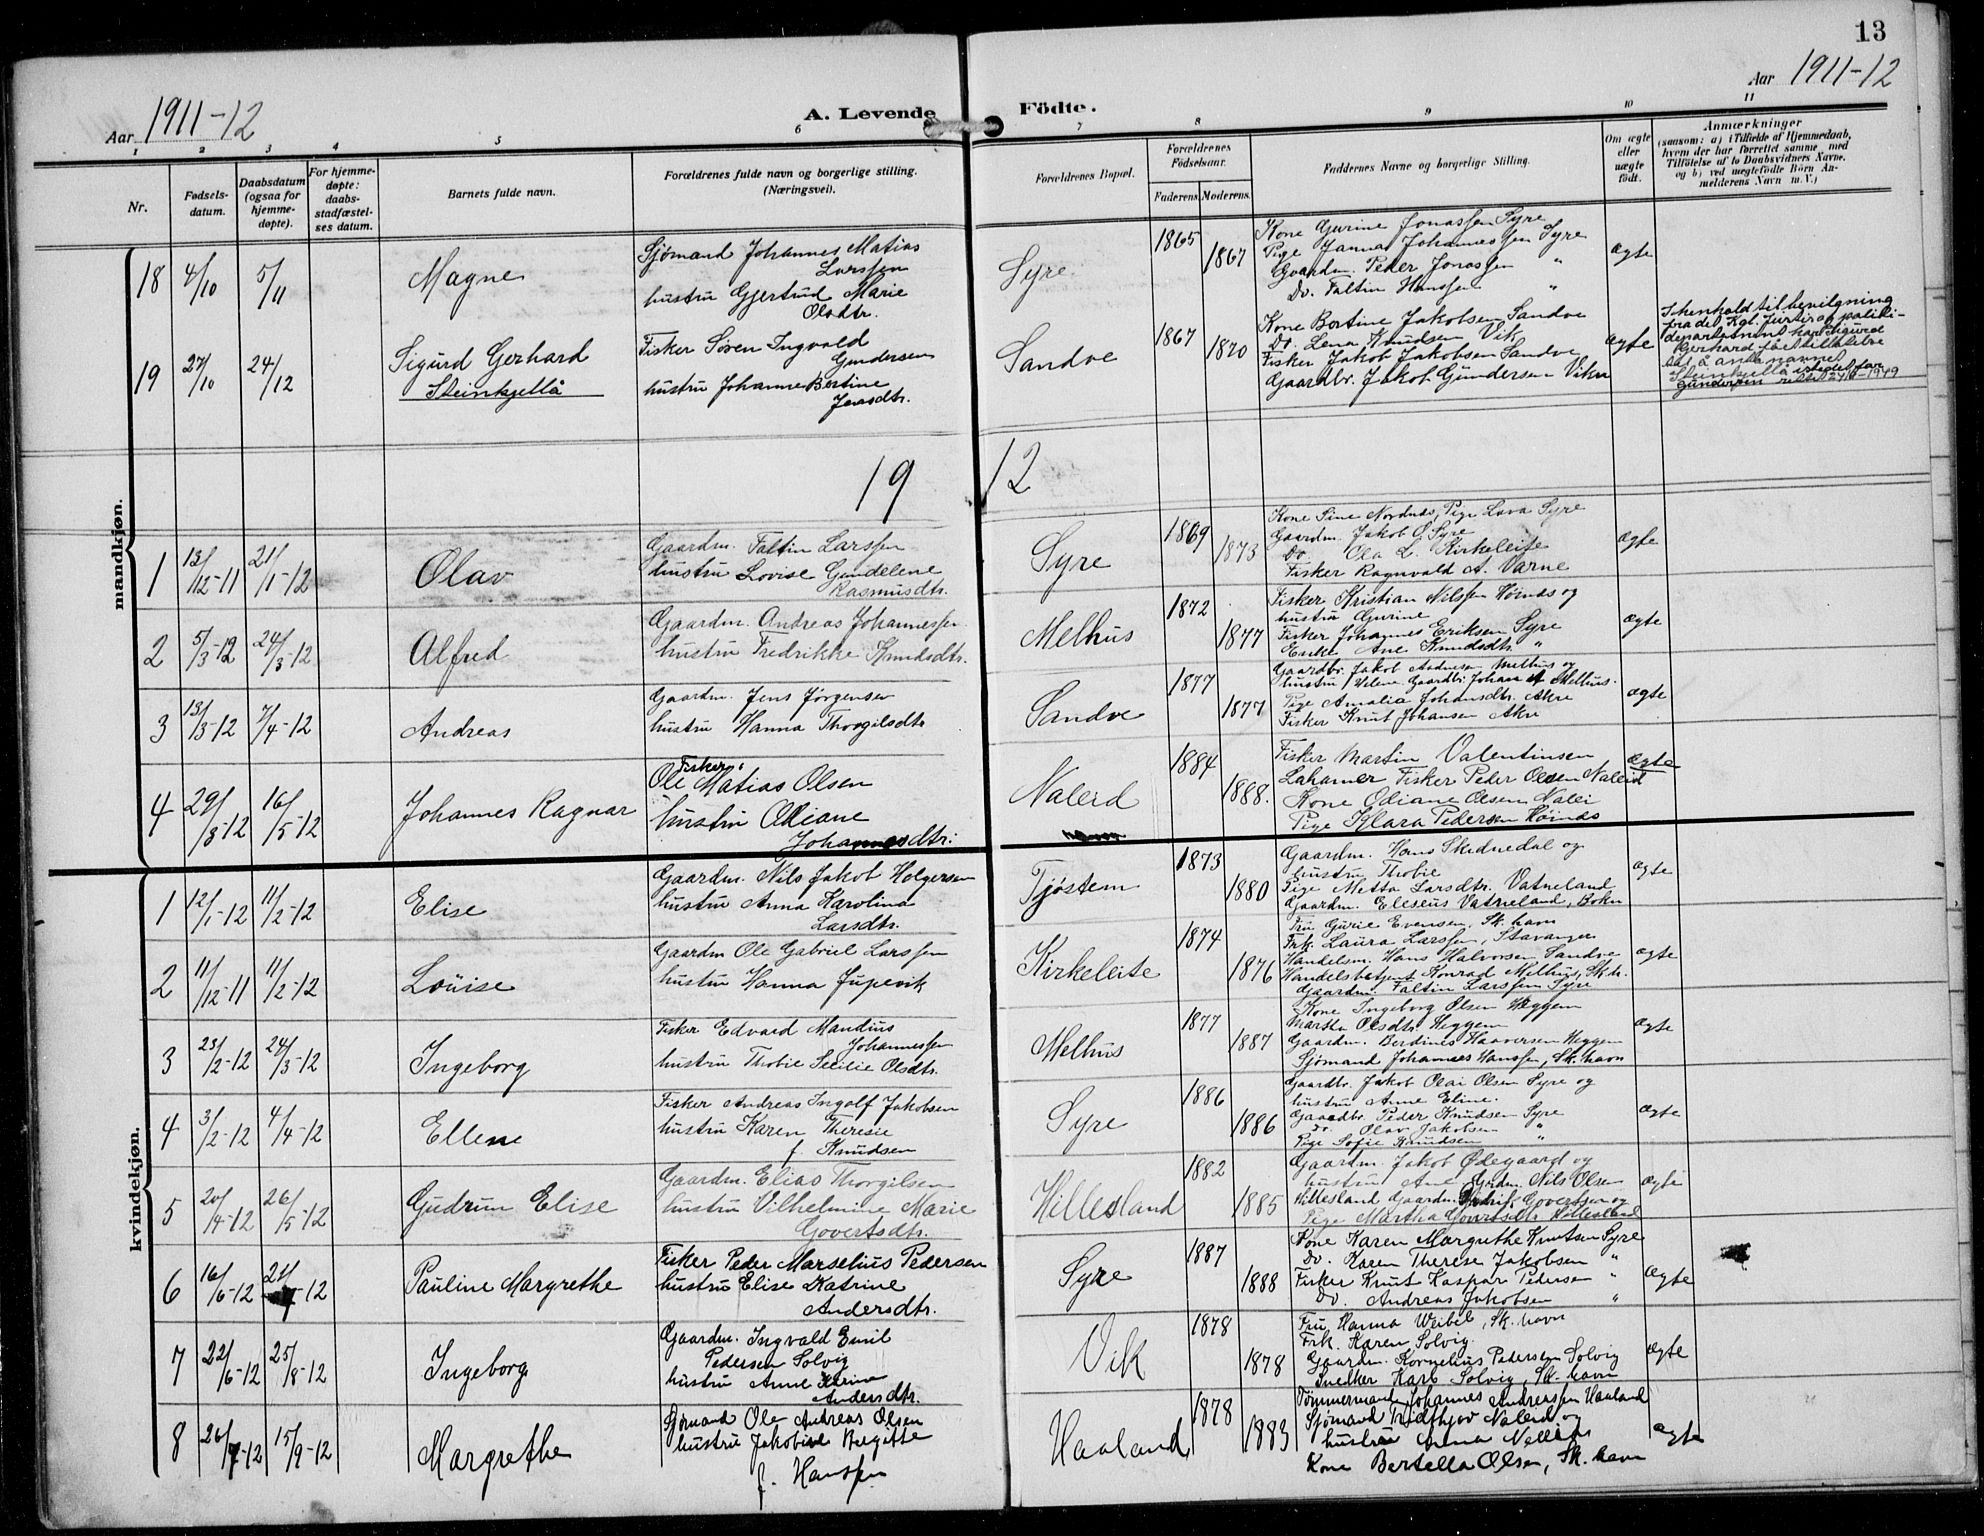 13
Aar 1911-12
A. Levende Fødte.
Aar 1911-12
1 2 3 4 5 6 7 8 9 10 11
Nr.
Fødsels-
datum.
Daabsdatum
(ogsaa for
hjemme-
døpte).
For hjemme-
døpte:
daabs-
stadfæstel-
ses datum.
Barnets fulde navn.
Forældrenes fulde navn og borgerlige stilling.
(Næringsvei).
Forældrenes Bopæl.
Forældrenes
Fødselsaar.
Faderens. Moderens.
Faddernes Navne og borgerlige Stilling.
Om ægte
eller
uægte
født.
Anmærkninger
(saasom: a) i Tilfælde af Hjemmedaab,
hvem der har forrettet samme, med
Tilføielse af to Daabsvidners Navne.
og b) ved uægtefødte Børn An-
melderens Navn m. V.)
mandkjøn.
18 4/10 5/11 Magne
Sjømand Johannes Matias
Larssen
hustru Gjertrud Marie
Olsdtr.
Syre 1865 1867
Kone Gurine Jonassen Syre
Pige Janna Johannessen Syre
Gaardm. Peder Jonassen "
Do. Faltin Hanssen "
ægte
19 27/10 24/12 Sigurd Gerhard
Steinkjellå
Fisker Søren Ingvald
Gundersen
hustru Johanne Bertine
Jensdtr.
Sandve 1867 1870
Kone Bertine Jakobsen Sandve
Do. Lena Knudsen Vik
Fisker Jakob Jakobsen Sandve
Gaardbr. Jakob Gundersen Vikre
ægte
I henhold til bevilgning
fra det Kgl. Justis og politi-
departement har Sigurd
Gerhard fået tillatelse
til å anta navnet
Steinkjellå istedet for
Gundersen
1912
1 13/12-11 21/1-12 Olav
Gaardm. Faltin Larssen
hustru Lovise Gundelene
Rasmusdtr.
Syre 1869 1873
Kone Sine Nordnes, Pige Lava Syre
Gaardm. Jakob O. Syre
Do Ola L. Kirkeleite
Fisker Ragnvald A. Varne
ægte
2 5/3-12 24/3-12 Alfred
Gaardm. Andreas Johannessen
hustru Fredrikke Knudsdtr.
Melhus 1872 1877
Fisker Kristian Nilssen Høines og
hustru Gurine
Fisker Johannes Eriksen Syre
Enke Ane Knudsdtr. "
ægte
3 13/3-12 7/4-12 Andreas
Gaardm. Jens Jørgensen
hustru Hanna Thorgilsdtr
Sandve 1877 1877
Gaardbr. Jakob Andersen Melhus og
hustru Helene. Gaardbr. Johan A Melhus.
Pige Amalia Johansdtr. Akre
Fisker Knut Johansen Akre
ægte
4 29/3-12 16/5-12 Johannes Ragnar
Fisker
Ole Matias Olsen
hustru Odiane
Johannesdtr.
Naleid 1884 1888.
Fisker Martin Valentinsen
Lahamer Fisker Peder Olsen Naleid
Kone Odiane Olsen Nalei
Pige Klara Pedersen Høines
ægte
kvindekjøn.
1 12/1-12 11/2-12 Elise
Gaardm. Nils Jakob Holgersen
hustru Anna Karolina
Larsdtr.
Tjøstem 1873 1880
Gaardm. Hans Skednedal og
hustru Thobie
Pige Metta Larsdtr. Vatneland
Gaardm. Eliseus Vatneland, Bokn
ægte
2 11/12-11 11/2-12 Louise
Gaardm Ole Gabriel Larssen
hustru Hanna Jupevik
Kirkeleite 1874 1876
Fru Gurie Evensen, Sk. havn
Frk. Laura Larssen, Stavanger
Handelsm. Hans Halvorsen Sandve
Handelsbetjent Konrad Melhus, Sk. h.
Gaardm. Faltin Larssen Syre
ægte
3 23/2-12 24/3-12 Ingeborg
Fisker Edvard Mandius
Johannessen
hustru Thobie Secilie Olsdtr.
Melhus 1877 1887
Kone Ingeborg Olsen Heggem
Marta Olsdtr. Heggem
Gaardm. Berdines Haaversen Heggem
Sjømand Johannes Hanssen, Sk. havn
ægte
4 3/2-12 4/4-12 Ellene
Fisker Andreas Ingolf Jakobsen
hustru Karen Theresie
f. Knudsen
Syre 1886 1886
Gaardbr. Jakob Olai Olsen Syre og
hustru Anne Eline.
Gaardbr. Peder Knudsen Syre
Do. Olav Jakobsen "
Pige Sofie Knudsen "
ægte
5 20/4-12 26/5-12 Gudrun Elise
Gaardm. Elias Thorgilsen
hustru Vilhelmine Marie
Govertsdtr.
Hillesland 1882 1885
Gaardm. Jakob Ødegaard og
hustru Ane, Grdm. Nils Olsen
Hillesland Gaardm. Govertsen og
Pige Martha Govertsdtr. Hillesland
ægte
6 16/6-12 21/7-12 Pauline Margrethe
Fisker Peder Marselius Pedersen
hustru Elise Katrine
Andersdtr.
Syre 1887 1888
Kone Karen Margrethe Knutsen Syre
Do. Karen Therese Jakobsen "
Fisker Knut Kaspar Pedersen "
Do. Andreas Jakobsen "
ægte
7 22/6-12 25/8-12 Ingeborg
Gaardm. Ingvald Emil
Pedersen Solvig
hustru Anne Karine
Andersdtr.
Vik 1878 1878
Fru Hanna Weibel, Sk. havn
Frk. Karen Solvig.
Gaardm. Kornelius Pedersen Solvig
Snedker Karl Solvig, Sk. havn
ægte
8 26/7-12 15/9-12 Margrethe
Sjømand Ole Andreas Olsen
hustru Jakobine Bergitte
f. Hanssen
Haaland 1878 1883
Tømmermand Johannes Andreassen Haaland
Sjømand Fridthjov Naleid og
hustru Anna Naleid
Kone Bertella Olsen, Sk. havn
ægte